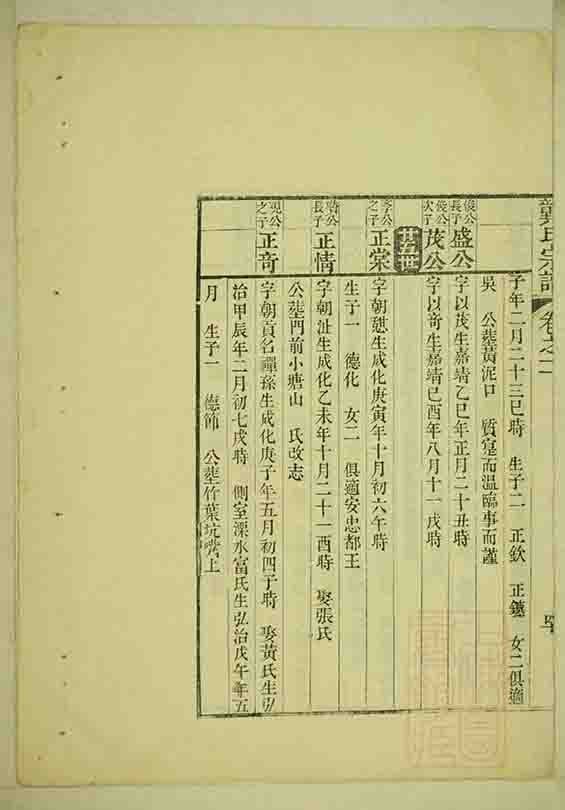 龔氏宗譜 卷之二
子年二月二十三巳時 生子二 正欽 正鐩 女二俱適
吳 公塟黃泥口 質寔而溫臨事而謹
俊公長子 盛公 字以茂生嘉靖乙巳年正月二十丑時
俊公次子 茂公 字以奇生嘉靖己酉年八月十一戌時
廿五世
之子 正棠 字朝憇生成化庚寅年十月初六午時
生子一 德化 女二 俱適安忠都王
長子 正情 字朝沚生成化乙未年十月二十一酉時 娶張氏
公塟門前小塘山 氏改志
之子 正奇 字朝貢名禪孫生成化庚子年五月初四子時 娶黃氏生弘
治甲辰年二月初七戌時 側室溧水富氏生弘治戊午年五
月 生子一 德飾 公塟竹葉坑嘴上